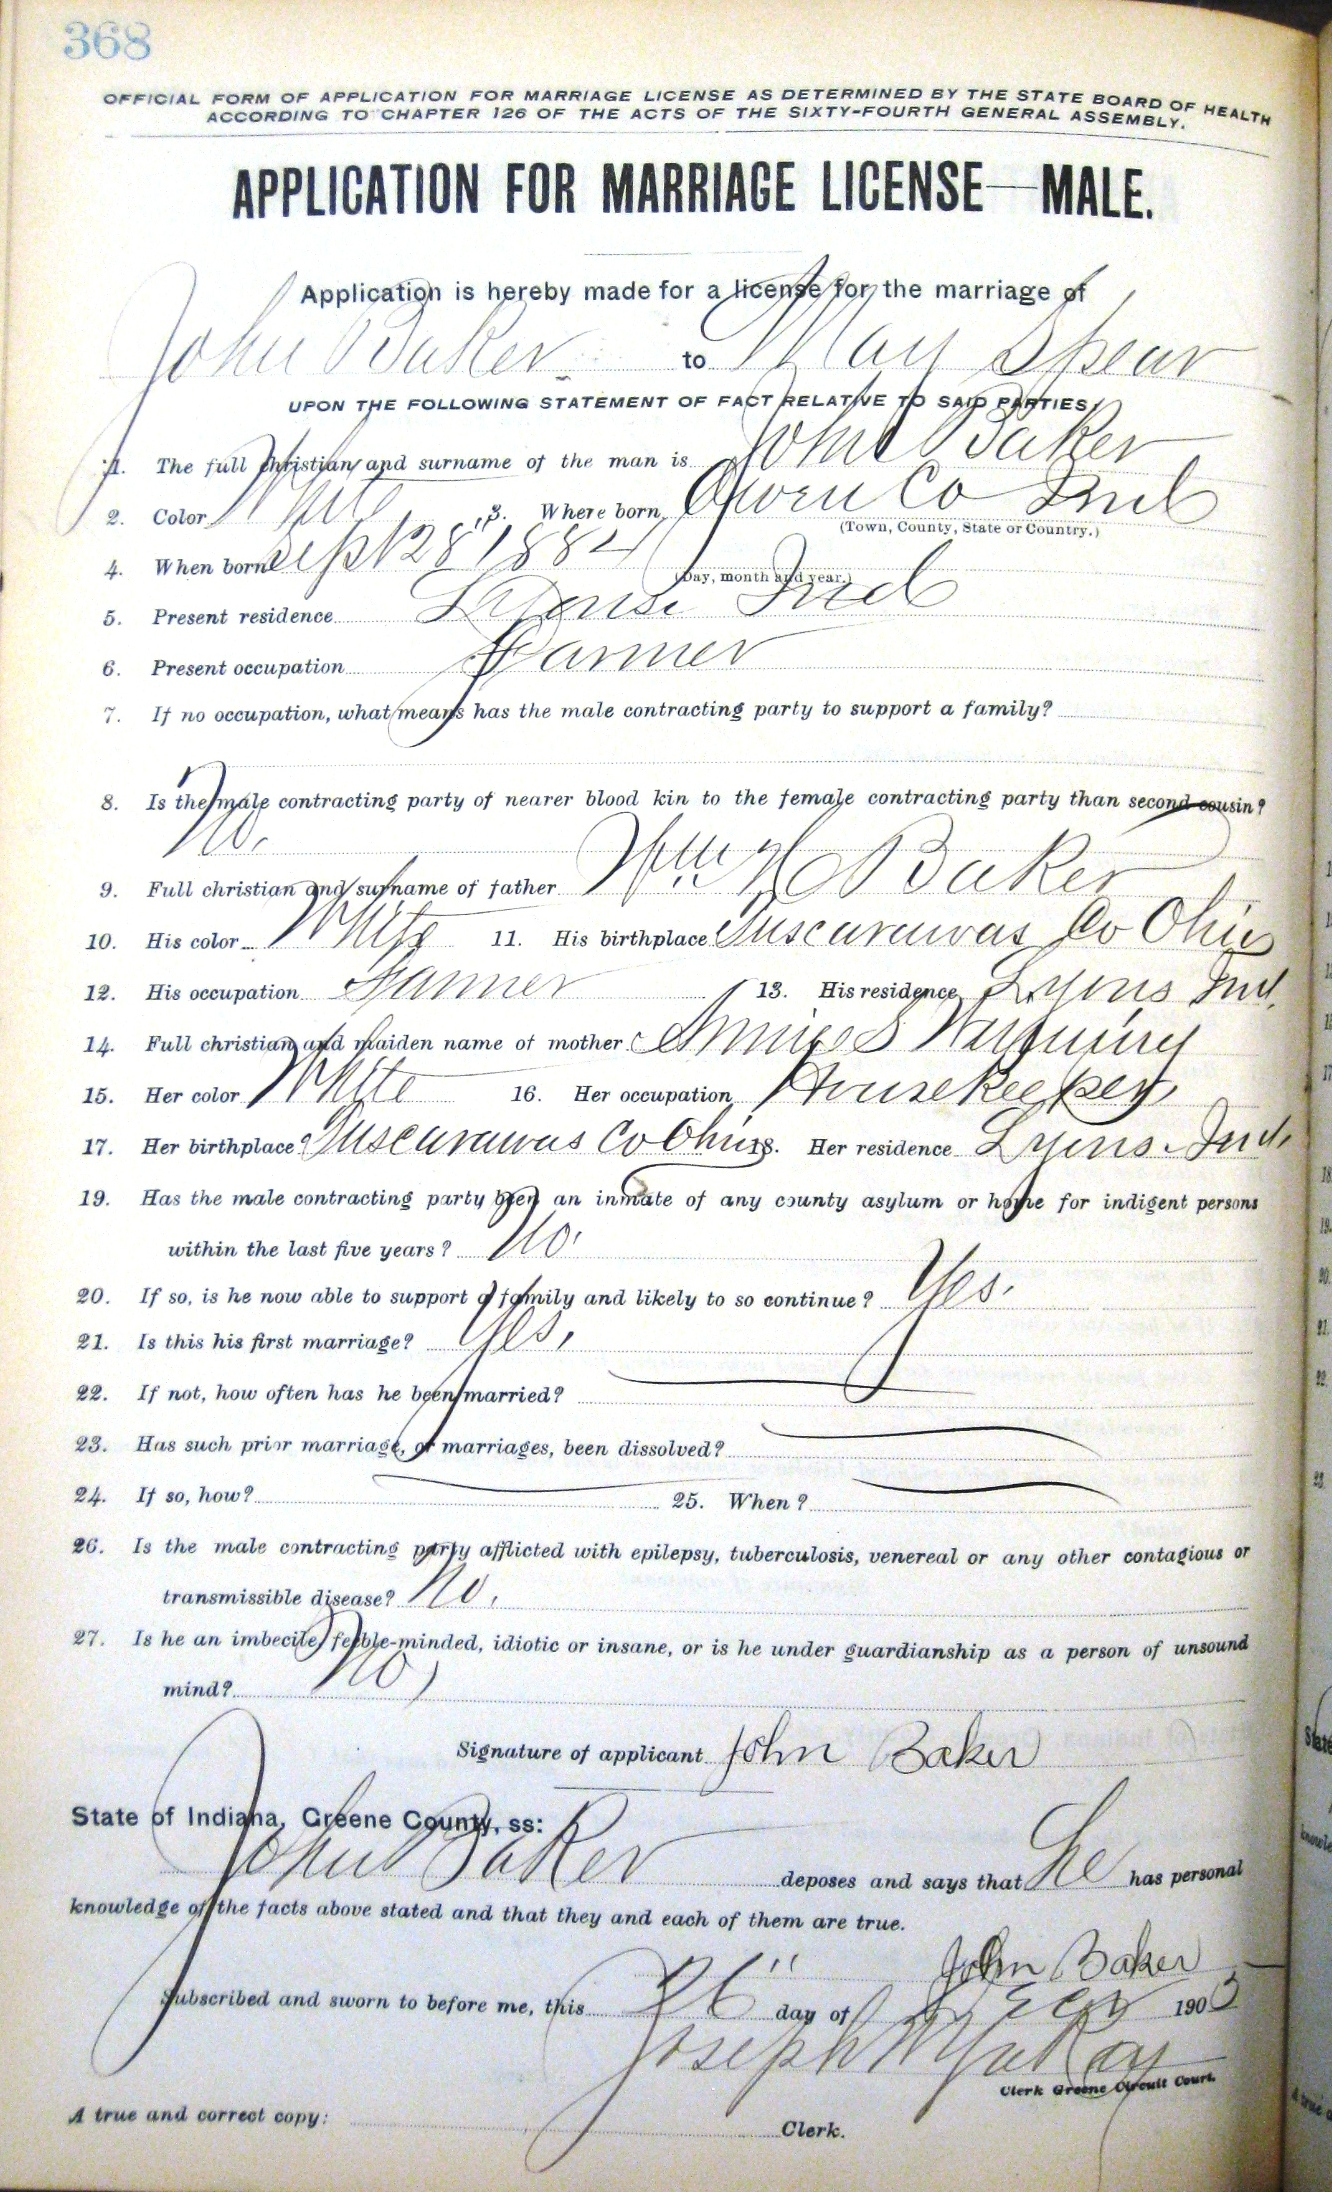 368
OFFICIAL FORM OF APPLICATION FOR MARRIAGE LICENSE AS DETERMINED BY THE STATE BOARD OF HEALTH
ACCORDING TO CHAPTER 126 OF THE ACTS OF THE SIXTY-FOURTH GENERAL ASSEMBLY.
APPLICATION FOR MARRIAGE LICENSE—MALE.
Application is hereby made for a license for the marriage of
John Baker to May Spear
UPON THE FOLLOWING STATEMENT OF FACT RELATIVE TO SAID PARTIES,
1. The full christian and surname of the man is John Baker
2. Color White 3. Where born Owen Co Ind
(Town, County, State or Country.)
4. When born Sept 28" 1884
(Day, month and year.)
5. Present residence Lyons Ind
6. Present occupation Farmer
7. If no occupation, what means has the male contracting party to support a family?
8. Is the male contracting party of nearer blood kin to the female contracting party than second cousin?
No.
9. Full christian and surname of father Wm H Baker
10. His color White 11. His birthplace Tuscarawas Co Ohio
12. His occupation Farmer 13. His residence Lyons Ind.
14. Full christian and maiden name of mother S
15. Her color White 16. Her occupation Housekeeper
17. Her birthplace Tuscarawas Co Ohio 18. Her residence Lyons Ind.
19. Has the male contracting party been an inmate of any county asylum or home for indigent persons
within the last five years? No.
20. If so, is he now able to support a family and likely to so continue? Yes.
21. Is this his first marriage? Yes,
22. If not, how often has he been married?
23. Has such prior marriage, or marriages, been dissolved?
24. If so, how? 25. When?
26. Is the male contracting party afflicted with epilepsy, tuberculosis, venereal or any other contagious or
transmissible disease? No.
27. Is he an imbecile, feeble-minded, idiotic or insane, or is he under guardianship as a person of unsound
mind? No
Signature of applicant John Baker
State of Indiana, Greene County, ss:
John Baker deposes and says that he has personal
knowledge of the facts above stated and that they and each of them are true.
John Baker
Subscribed and sworn to before me, this 26" day of Decr 190
Joseph
Clerk Greene Circuit Court.
A true and correct copy: Clerk.